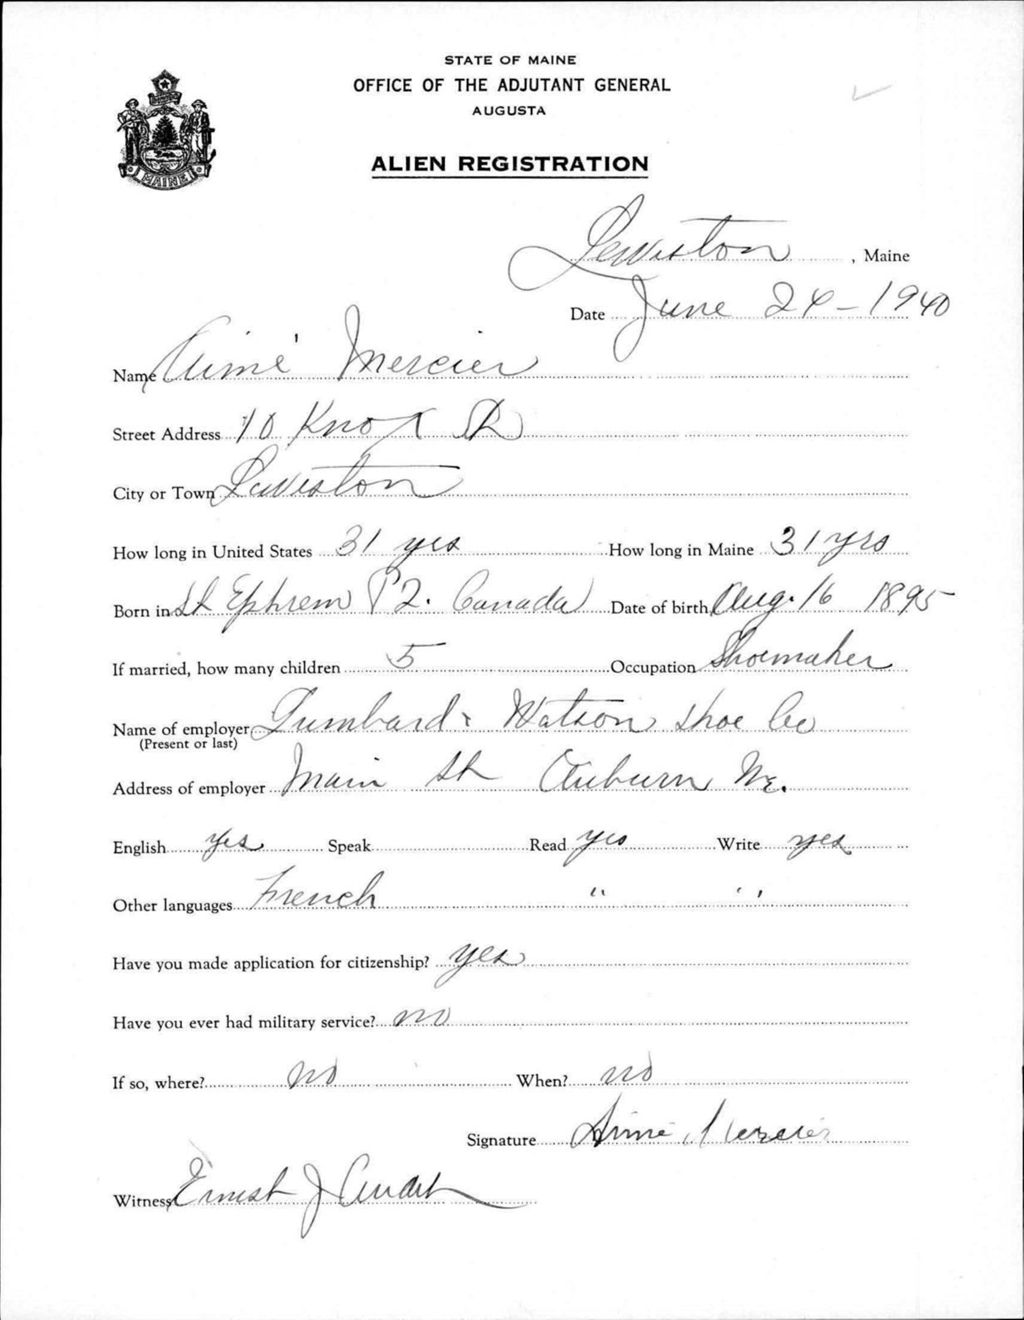 STATE OF MAINE
OFFICE OF THE ADJUTANT GENERAL
AUGUSTA
MAINE
ALIEN REGISTRATION
Lewiston, Maine
Date June 24-1940
Name Aimé Mercier
Street Address 10 Knox St
City or Town Lewiston
How long in United States 31 yrs How long in Maine 31 yrs
Born in St Ephrem P2. Canada Date of birth Aug. 16 1895
If married, how many children 5 Occupation Shoemaker
Name of employer Lumbard & Watson Shoe Co
(Present or last)
Address of employer Main St Auburn Me.
English yes Speak Read yes Write yes
Other languages French " "
Have you made application for citizenship? yes
Have you ever had military service? no
If so, where? no When? no
Signature Aimé Mercier
Witness Ernest J